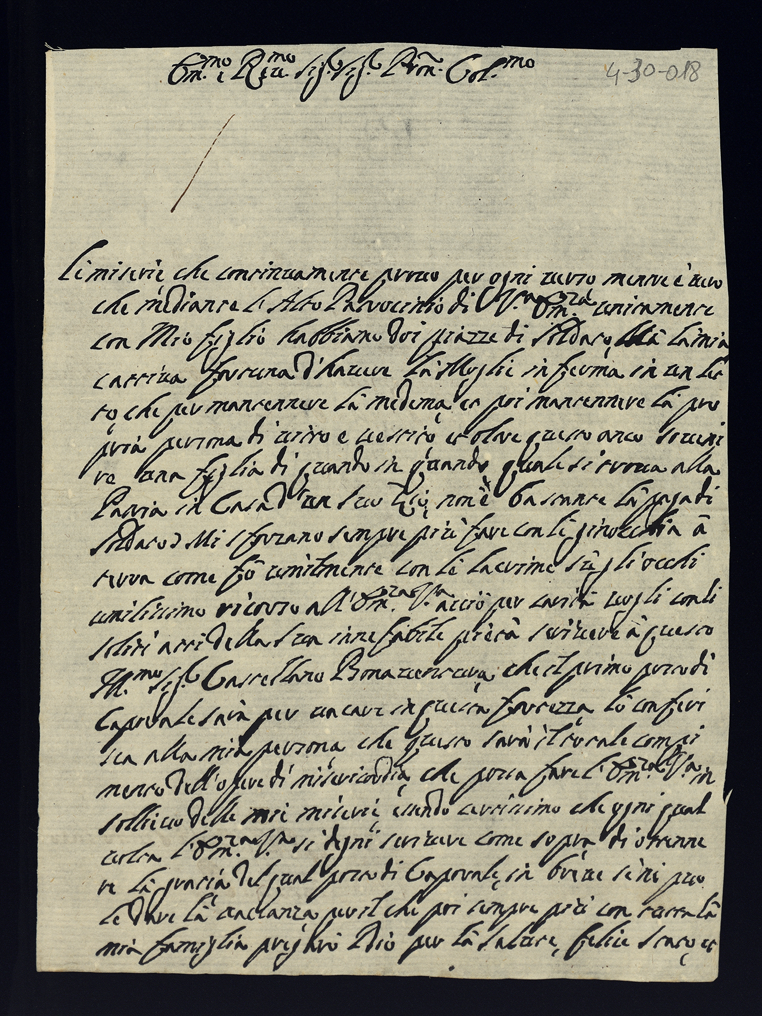 Em.mo e R.mo Sig.r Sig.r Pron. Col.mo
4-30-018
Le miserie che continuamente provo per ogni verso mentre è vero
che mediante l'Alto Patrocinio di V.ra Em.za unitamente
con Mio figlio habbiamo doi piazze di soldato la mia
cattiva fortuna d'havere la Moglie inferma in un let
to che per mantenere la medema et poi mantenere la pro
pria persona di vitto e vestito et oltre questo anco soveni
re una figlia di quando in quando quale si trova alla
Patria in Casa d'un suo Zio non è bastante la paga di
soldato Mi sforzano sempre più fare con le ginocchia à
terra come fò umilmente con le lacrime sù gli occhi
umilissimo ricorso all'Em.za V.ra acciò per carità vogli con li
soliti atti della sua ineffabile pietà scrivere à questo
Ill.mo Sig.r Castellano Bonaventura che il primo posto di
Caporale sarà per vacare in questa fortezza lo conferi
sca alla mia persona che questo sarà il totale compi
mento dell'opere di misericordia che possa fare l'Em.za V.ra in
sollievo delle mie miserie essendo certissimo che ogni qual
volta l'Em.za V.ra si degni scrivere come sopra di ottene
re la gratia del qual posto di Caporale, in breve se ni puo
le dare la vacanza per il che poi sempre più con tutta la
mia famiglia pregarò Idio per la salute, felice stato, et